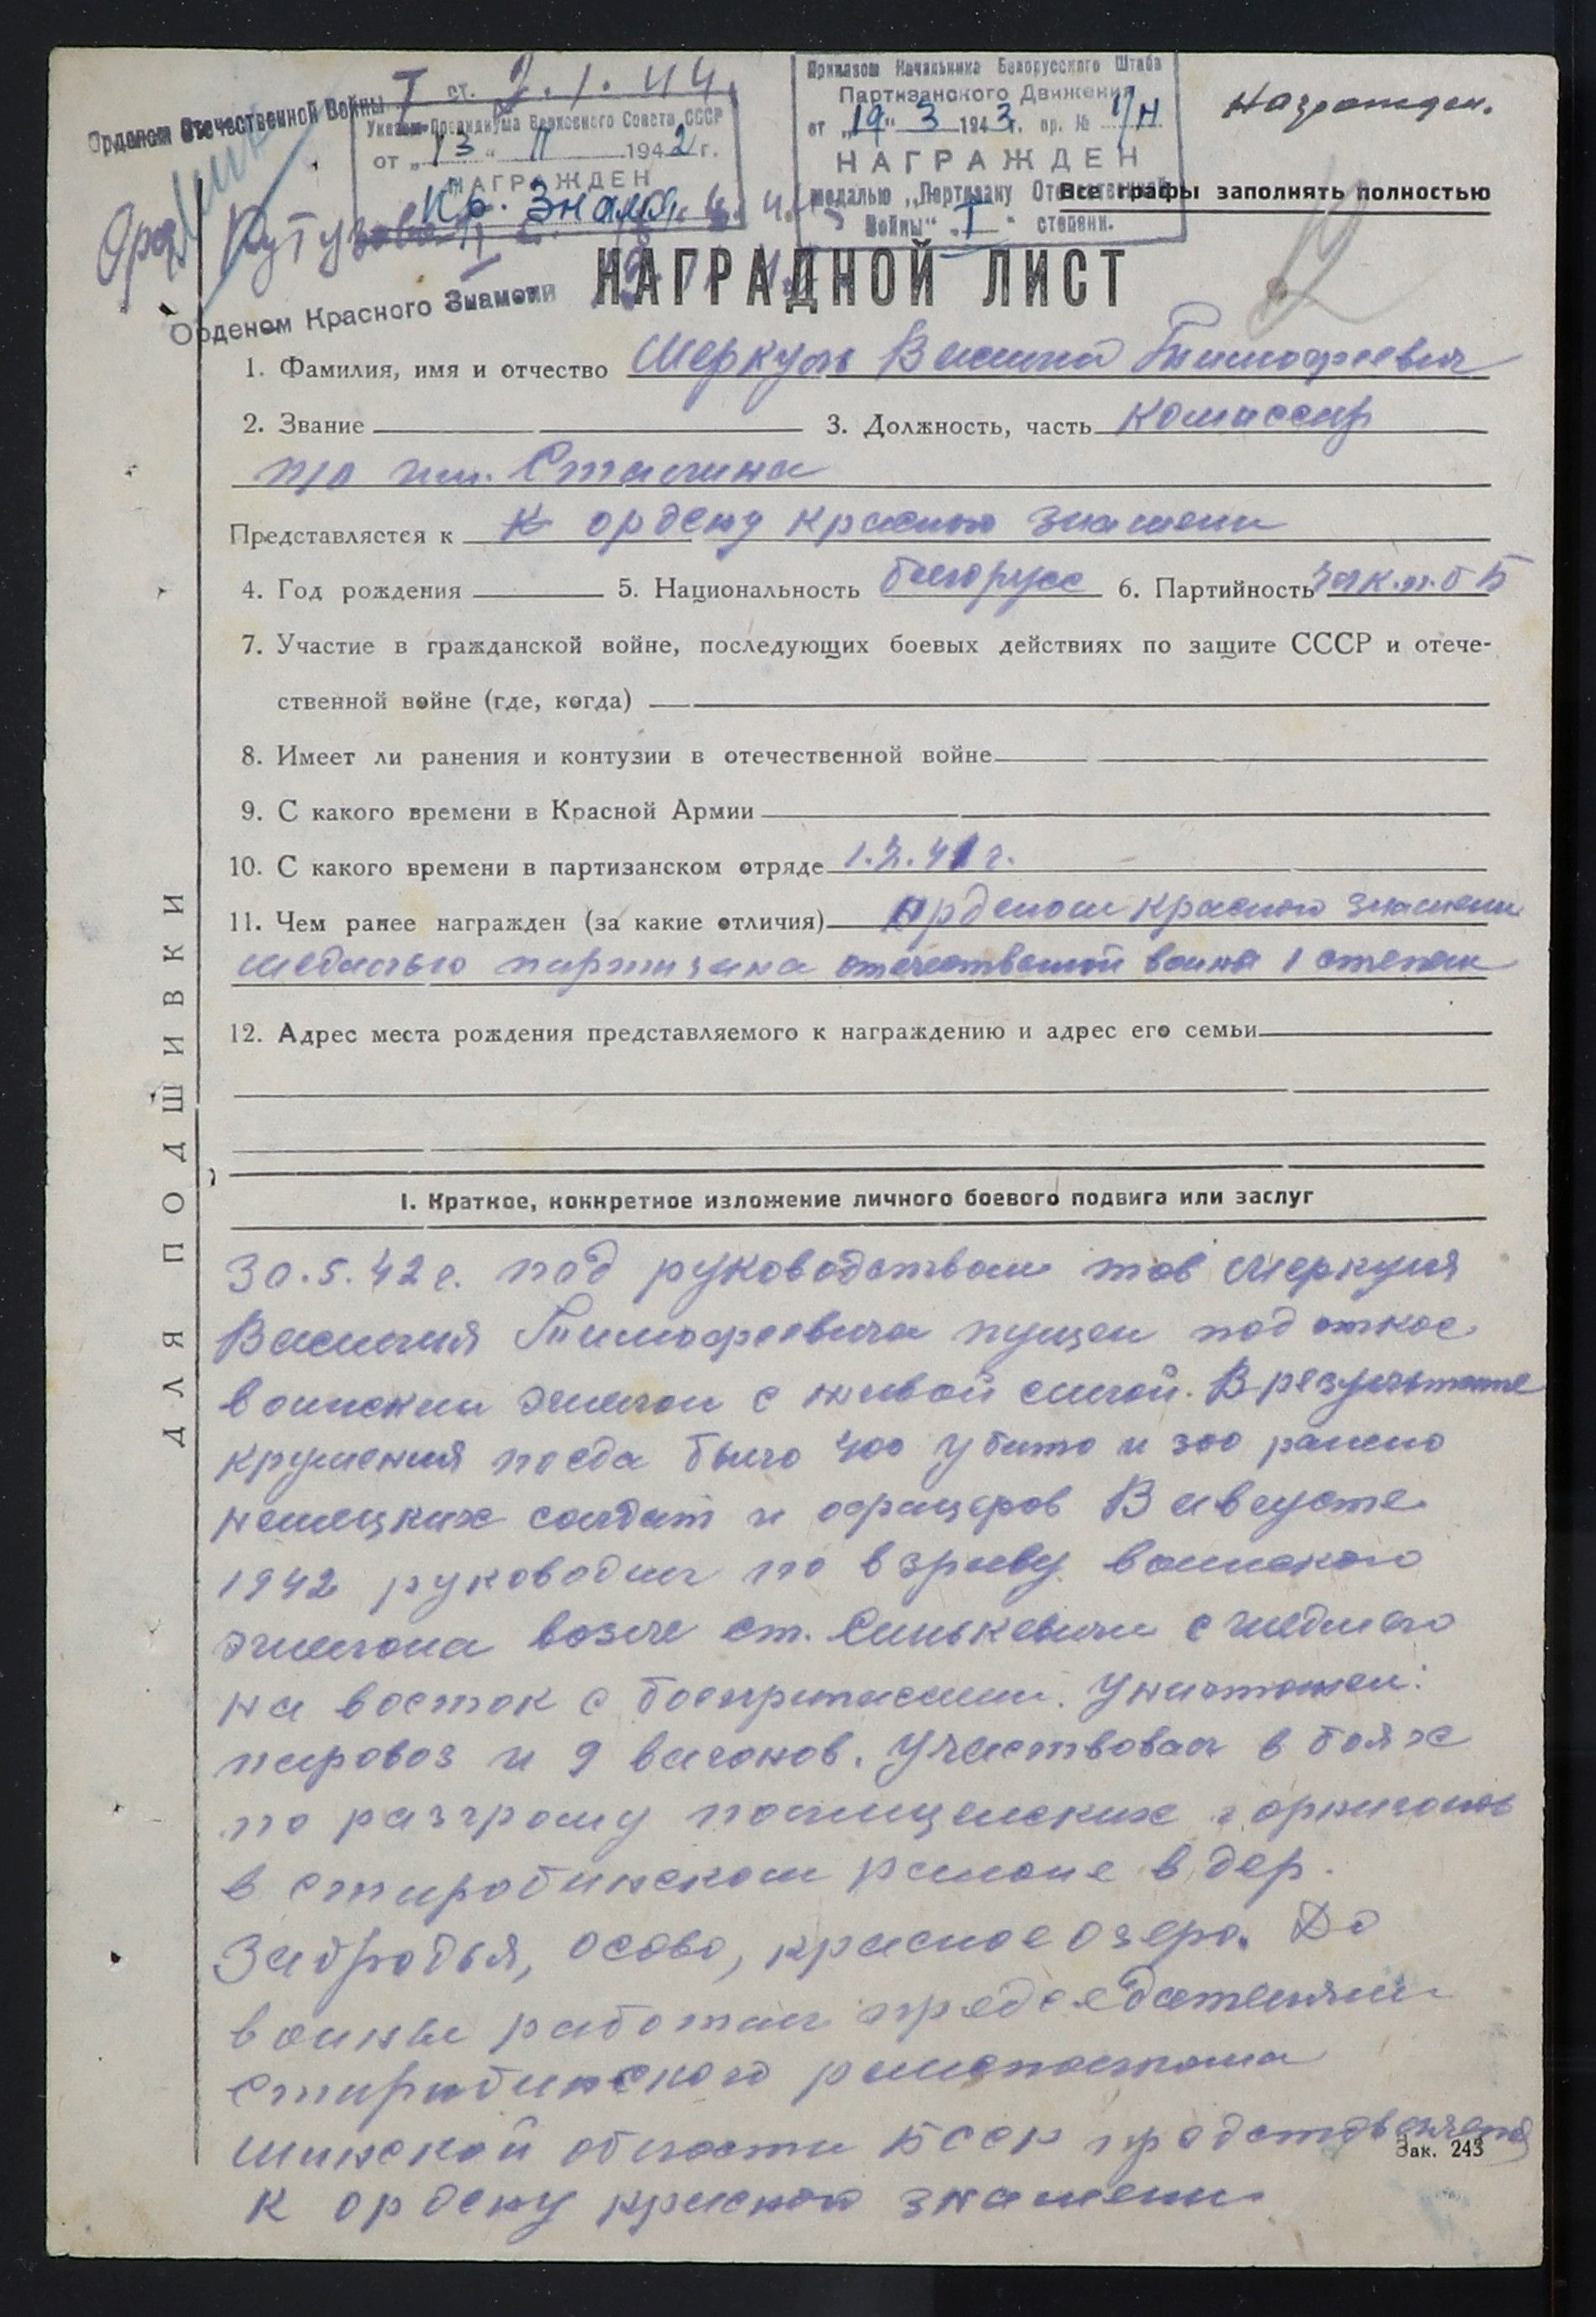 Орденом Отечественной Войны I ст. 2.1.44.
Указом Президиума Верховного Совета СССР
от „13“ 11 1942 г.
НАГРАЖДЕН
Кр. Знамя
Приказом Начальника Белорусского Штаба
Партизанского Движения
от „19“ 3 1943 г. пр. № 1/н
НАГРАЖДЕН
медалью „Партизану Отечественной
Войны“ „I“ степени.
Награжден.
Все графы заполнять полностью
Орд. Кутузова
Орденом Красного Знамени
НАГРАДНОЙ ЛИСТ
1. Фамилия, имя и отчество Меркуль Василий Тимофеевич
2. Звание 3. Должность, часть Комиссар
п/о им. Сталина
Представляется к к ордену красного знамени
4. Год рождения 5. Национальность белорусс 6. Партийность
7. Участие в гражданской войне, последующих боевых действиях по защите СССР и отече-
ственной войне (где, когда)
8. Имеет ли ранения и контузии в отечественной войне
9. С какого времени в Красной Армии
10. С какого времени в партизанском отряде
11. Чем ранее награжден (за какие отличия) орденом красного знамени
медалью партизана отечественной война 1 степени
12. Адрес места рождения представляемого к награждению и адрес его семьи
I. Краткое, конкретное изложение личного боевого подвига или заслуг
30.5.42 г. под руководством тов Меркуля
Василия Тимофеевича пущен под откос
воинский эшелон с живой силой. В результате
крушения поезда было 400 убито и 300 ранено
немецких солдат и офицеров В августе
1942 руководил по взрыву воинского
эшелона возле ст. Синькевичи следшего
на восток с боеприпасами. Уничтожен:
паровоз и 9 вагонов. Участвовал в боях
по разгрому полицейских гарнизонов
в старобинском районе в дер.
Забродья, осово, красное озеро. До
войны работал председателями
старобинского райисполкома
минской области БССР представляется
к ордену красного знамени
Зак. 243
ДЛЯ ПОДШИВКИ